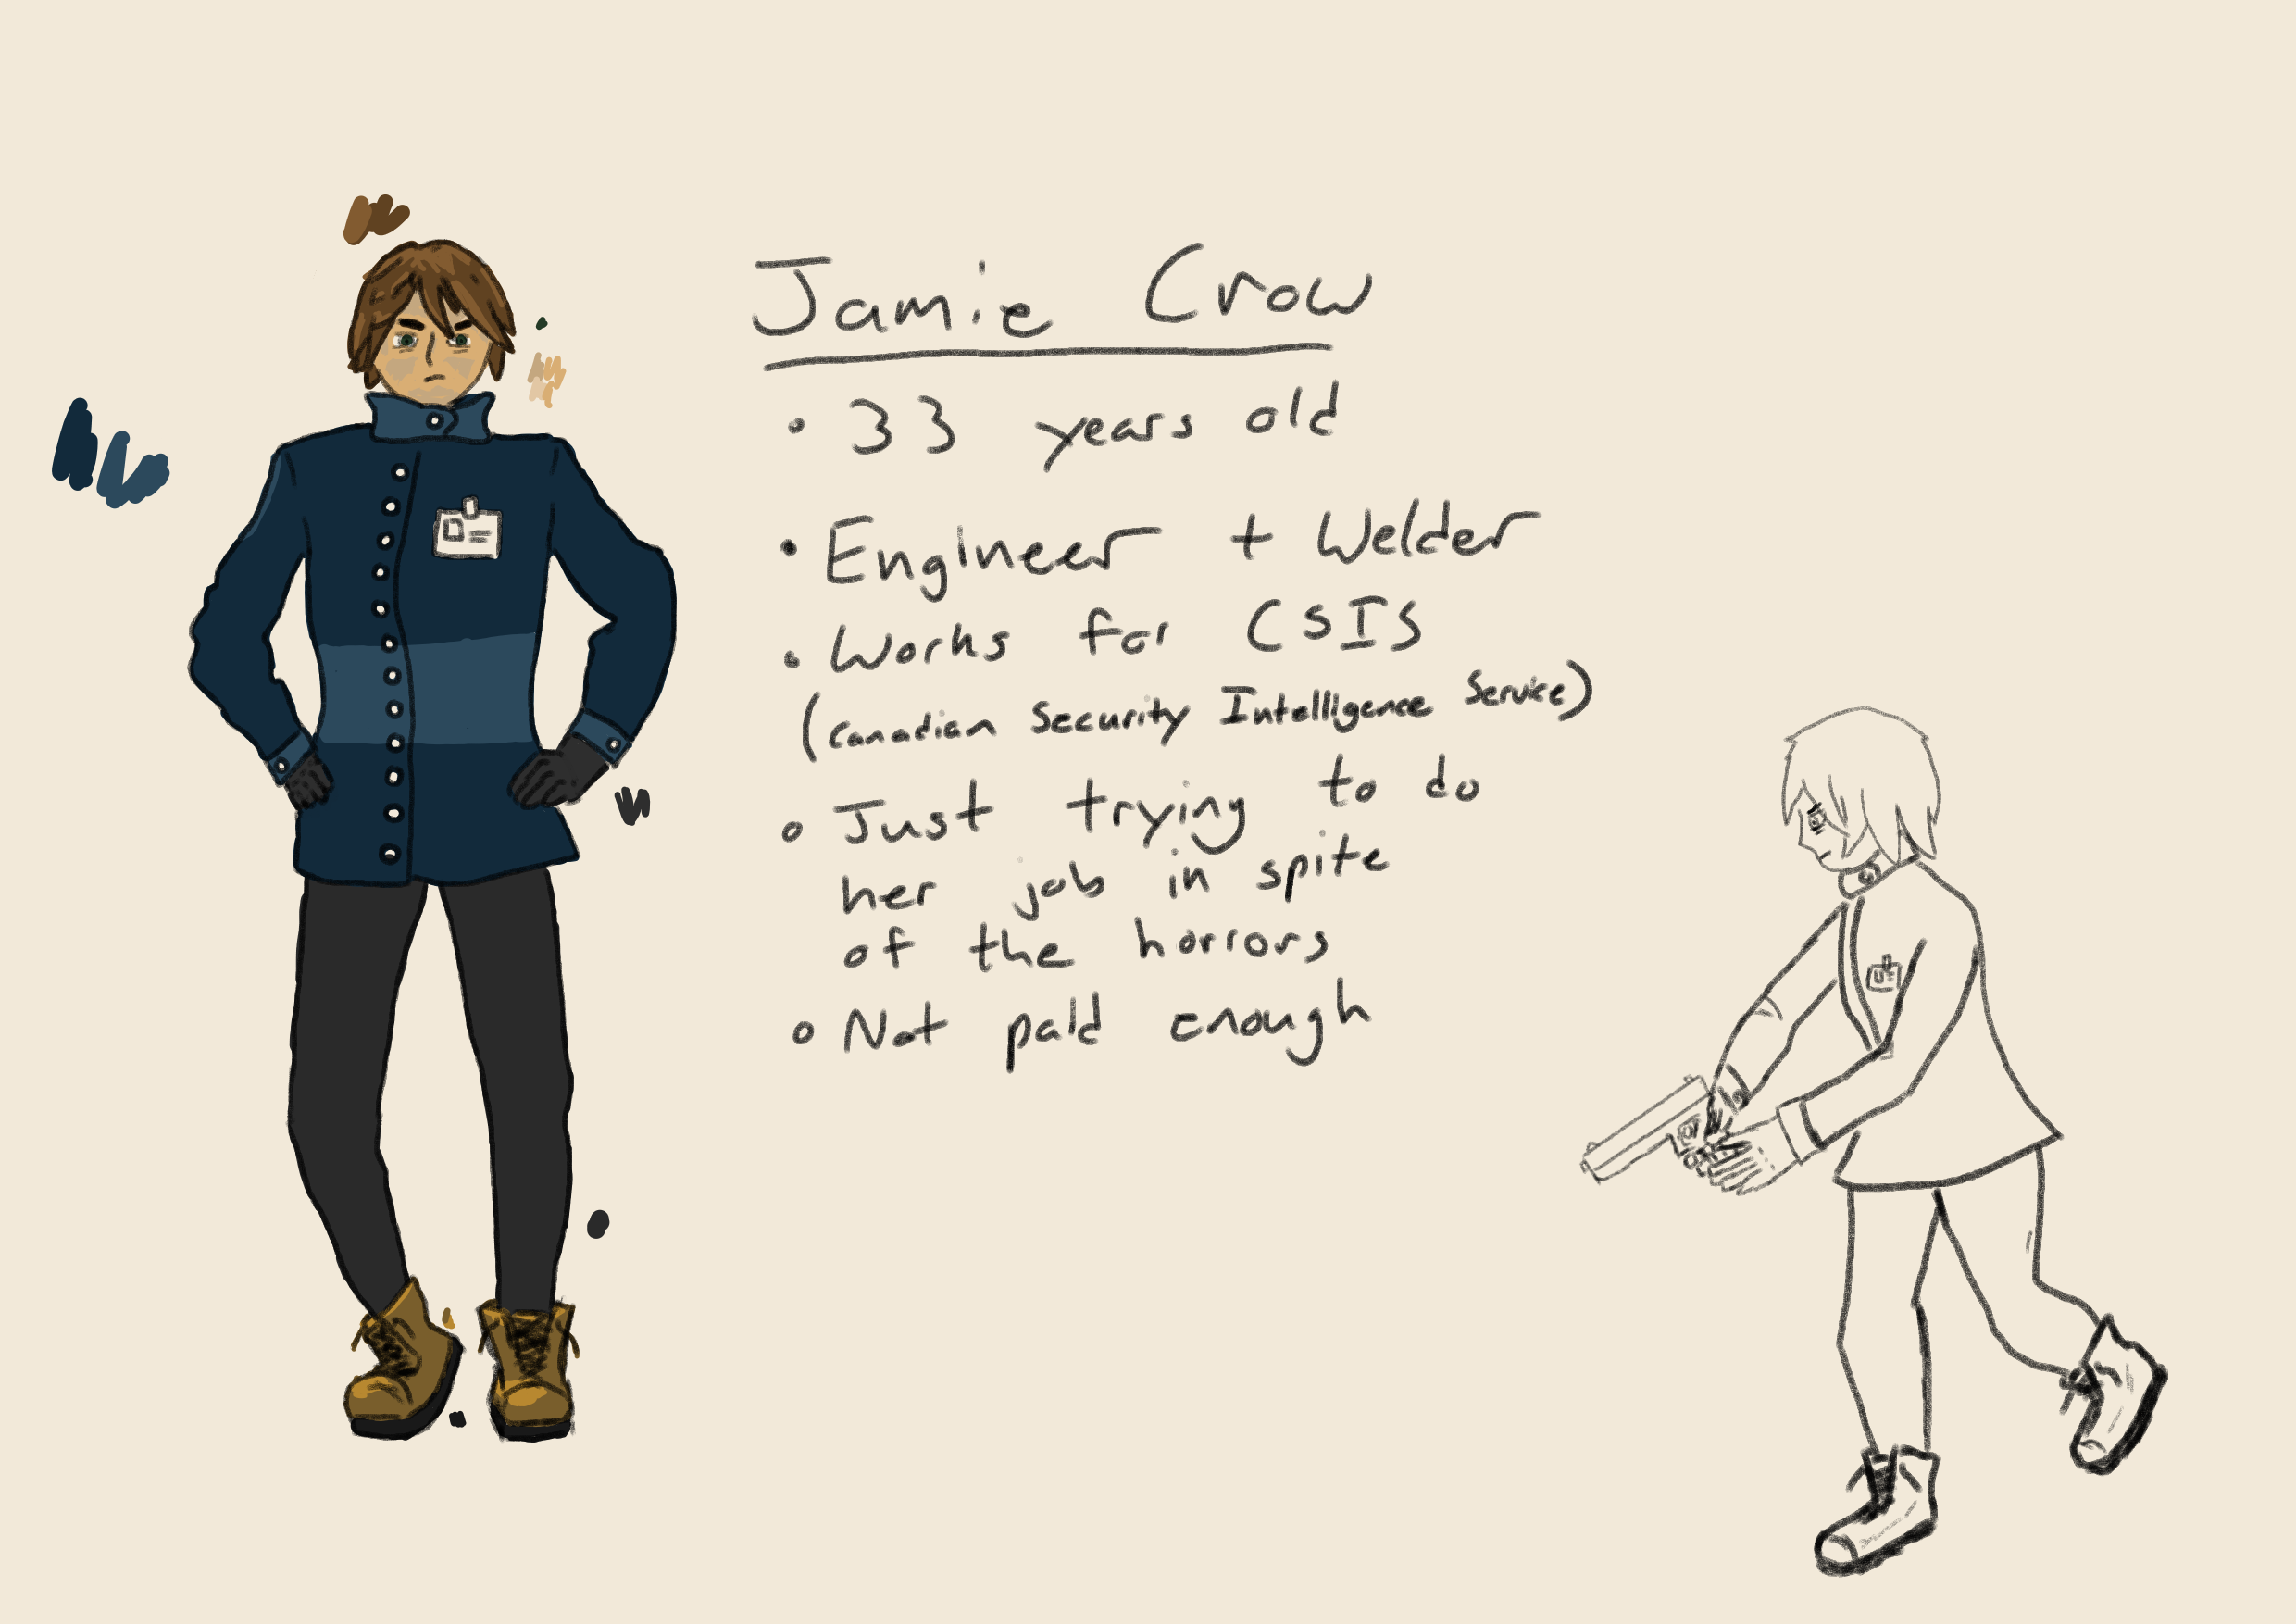 Jamie Crow
• 33 years old
• Engineer + Welder
• Works for CSIS
(Canadian Security Intelligence Service)
• Just trying to do
her job in spite
of the horrors
• Not paid enough